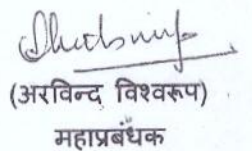 (अरविन्द विश्वरूप)
महाप्रबंधक